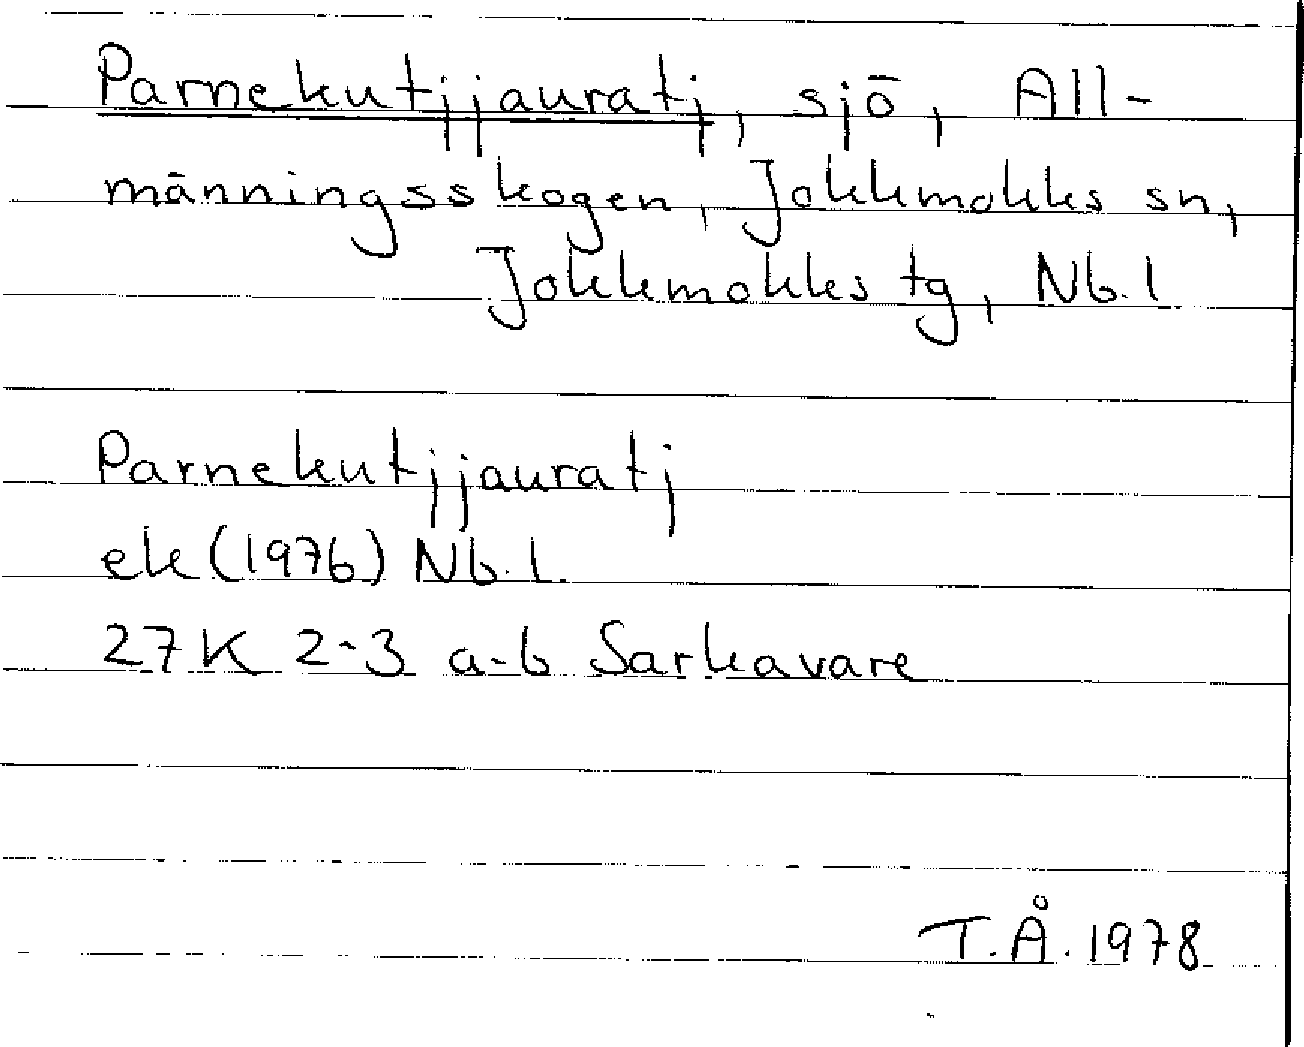 Parnekutjjauratj, sjö, All-
männingsskogen, Jokkmokks sn,
Jokkmokks tg, Nb. l
Parnekutjjauratj
ek (1976) Nb. l.
27K 2-3 a-b Sarkavare
T.Å. 1978